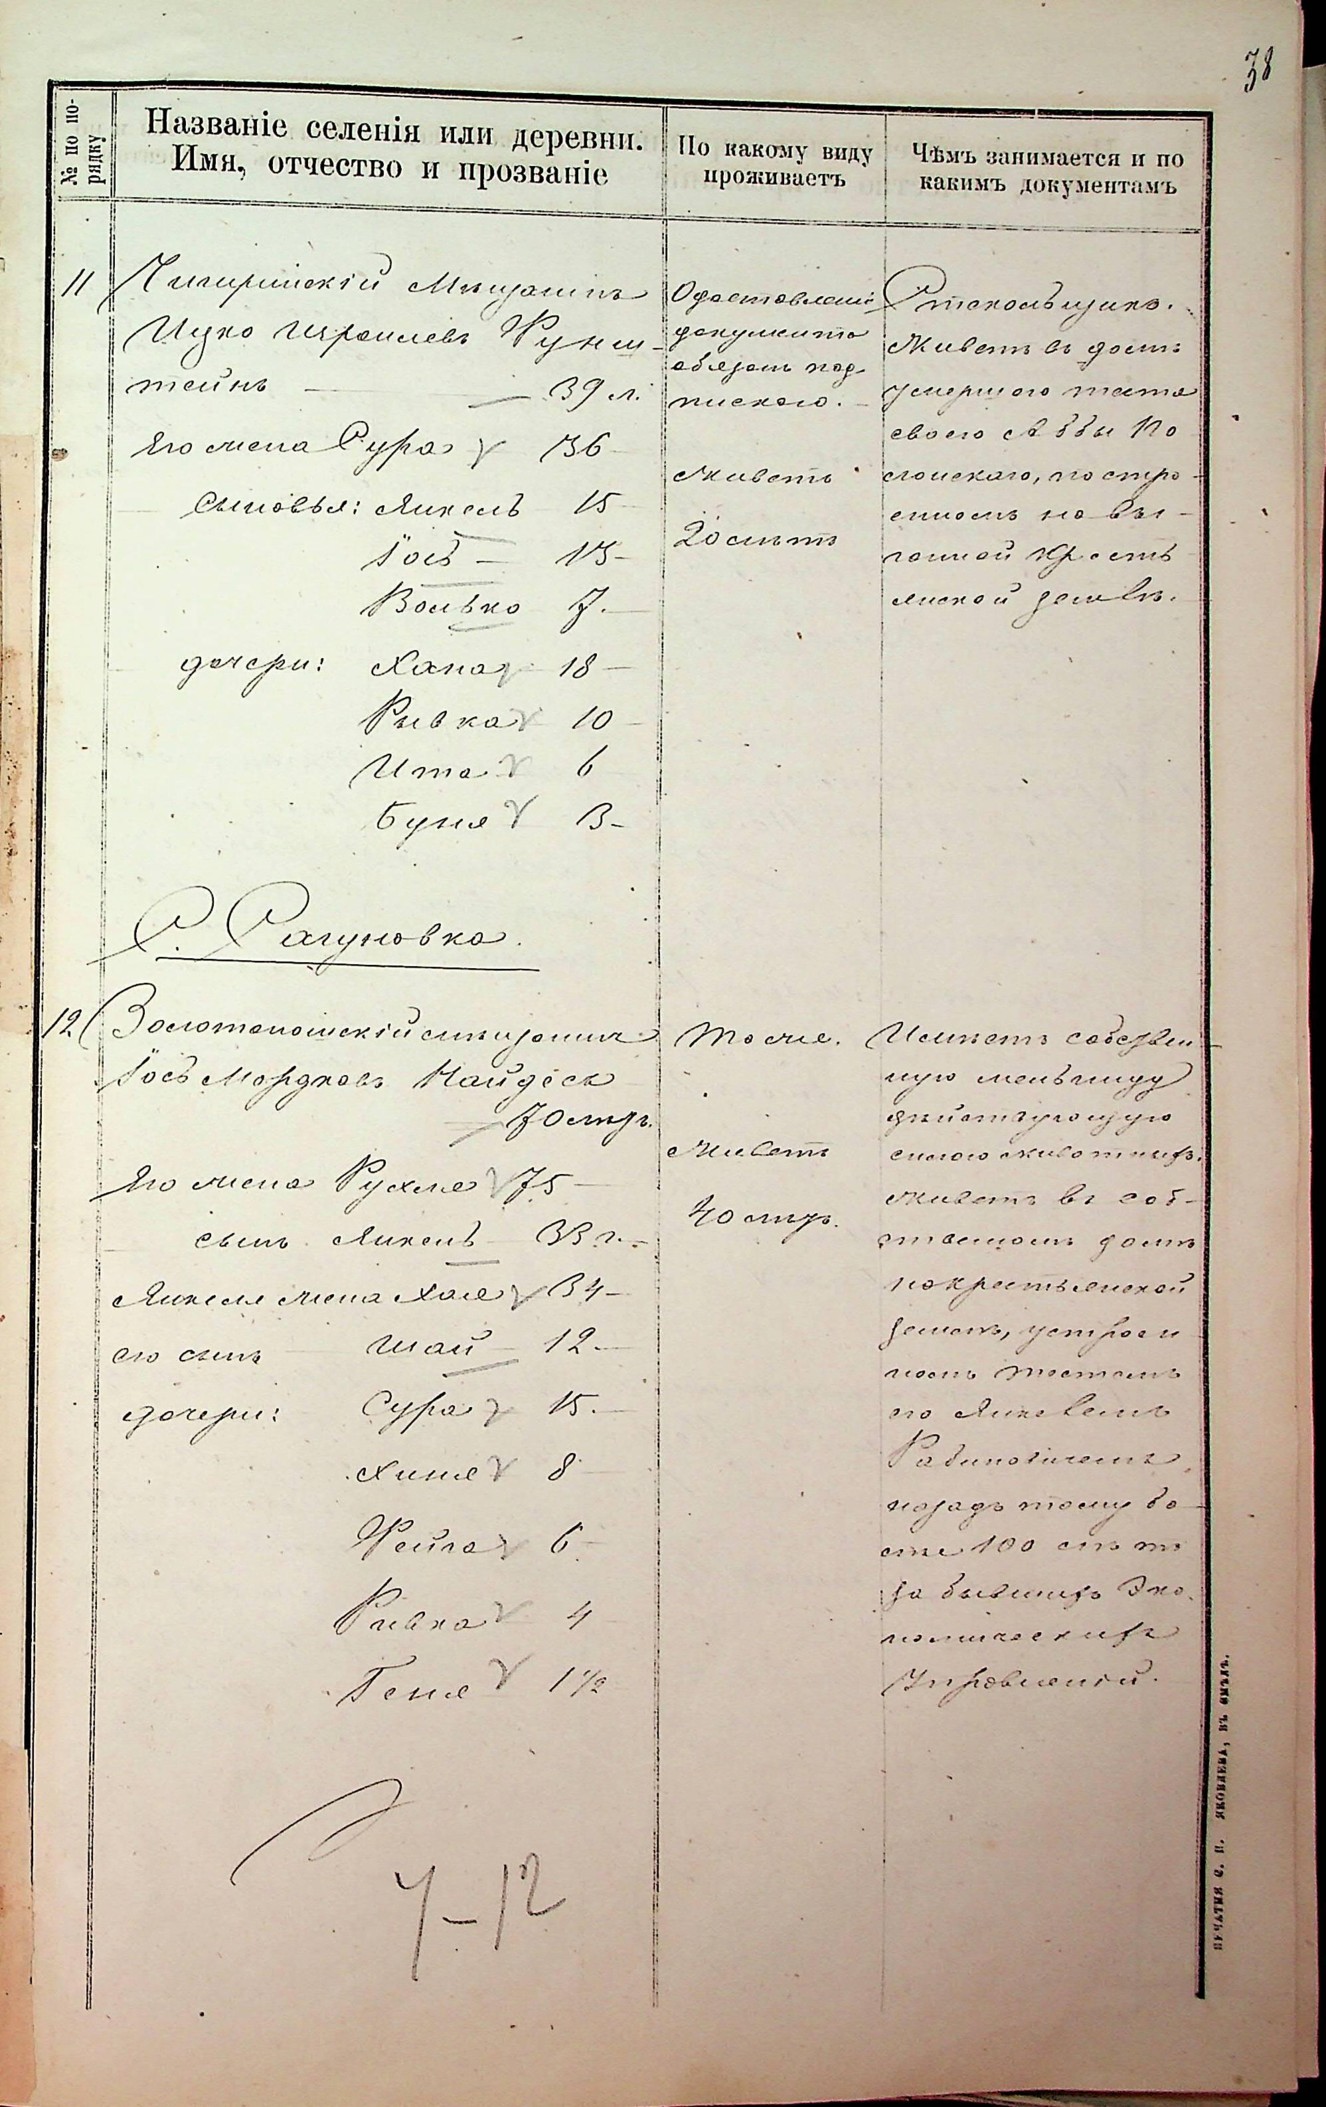 38
№ по по-
рядку
Названіе селенія или деревни.
Имя, отчество и прозваніе
По какому виду
проживаетъ
Чѣмъ занимается и по
какимъ документамъ
11
Чигиринскій Мѣщанинъ
Ицко Израилевъ Функш-
тейнъ — 39 л.
Его жена Сура 36
сыновья: Янкель 15
Іось — 13
Волько 7.
дочери: Хана 18
Рывка 10
Ита 6
Буня 3
О доставленіи
документа
обязанъ под-
пискою.
Живетъ
20 лѣтъ
Стекольщикъ.
Живетъ въ домѣ
умершаго тестя
своего Аббы По
лонскаго, постро-
енномъ на вы-
гонной кресть
янской землѣ.
С. Сагуновка.
12
Золотоношскій мѣщанинъ
Іось Мордковъ Найдесъ
70 лѣтъ.
Его жена Рухля 75
сынъ Янкель 33 г.
Янкеля жена Хая 34
его сынъ Шай 12
дочери: Сура 15.
Хиня 8
Фейга 6
Ривка 4
Геня 1 1/2
Тоже.
Живетъ
40 лѣтъ.
Имѣетъ собствен-
ную мельницу
дѣйствующую
силою животныхъ.
Живетъ въ соб-
ственномъ домѣ
на крестьянской
землѣ, устроен
номъ тестемъ
его Янкелемъ
Рабиновичемъ
назадъ тому бо-
лѣе 100 лѣтъ
за бывшихъ Эко-
номическихъ
Управленій.
7-12
ПЕЧАТНЯ С. П. ЯКОВЛЕВА, ВЪ СМѢЛѢ.